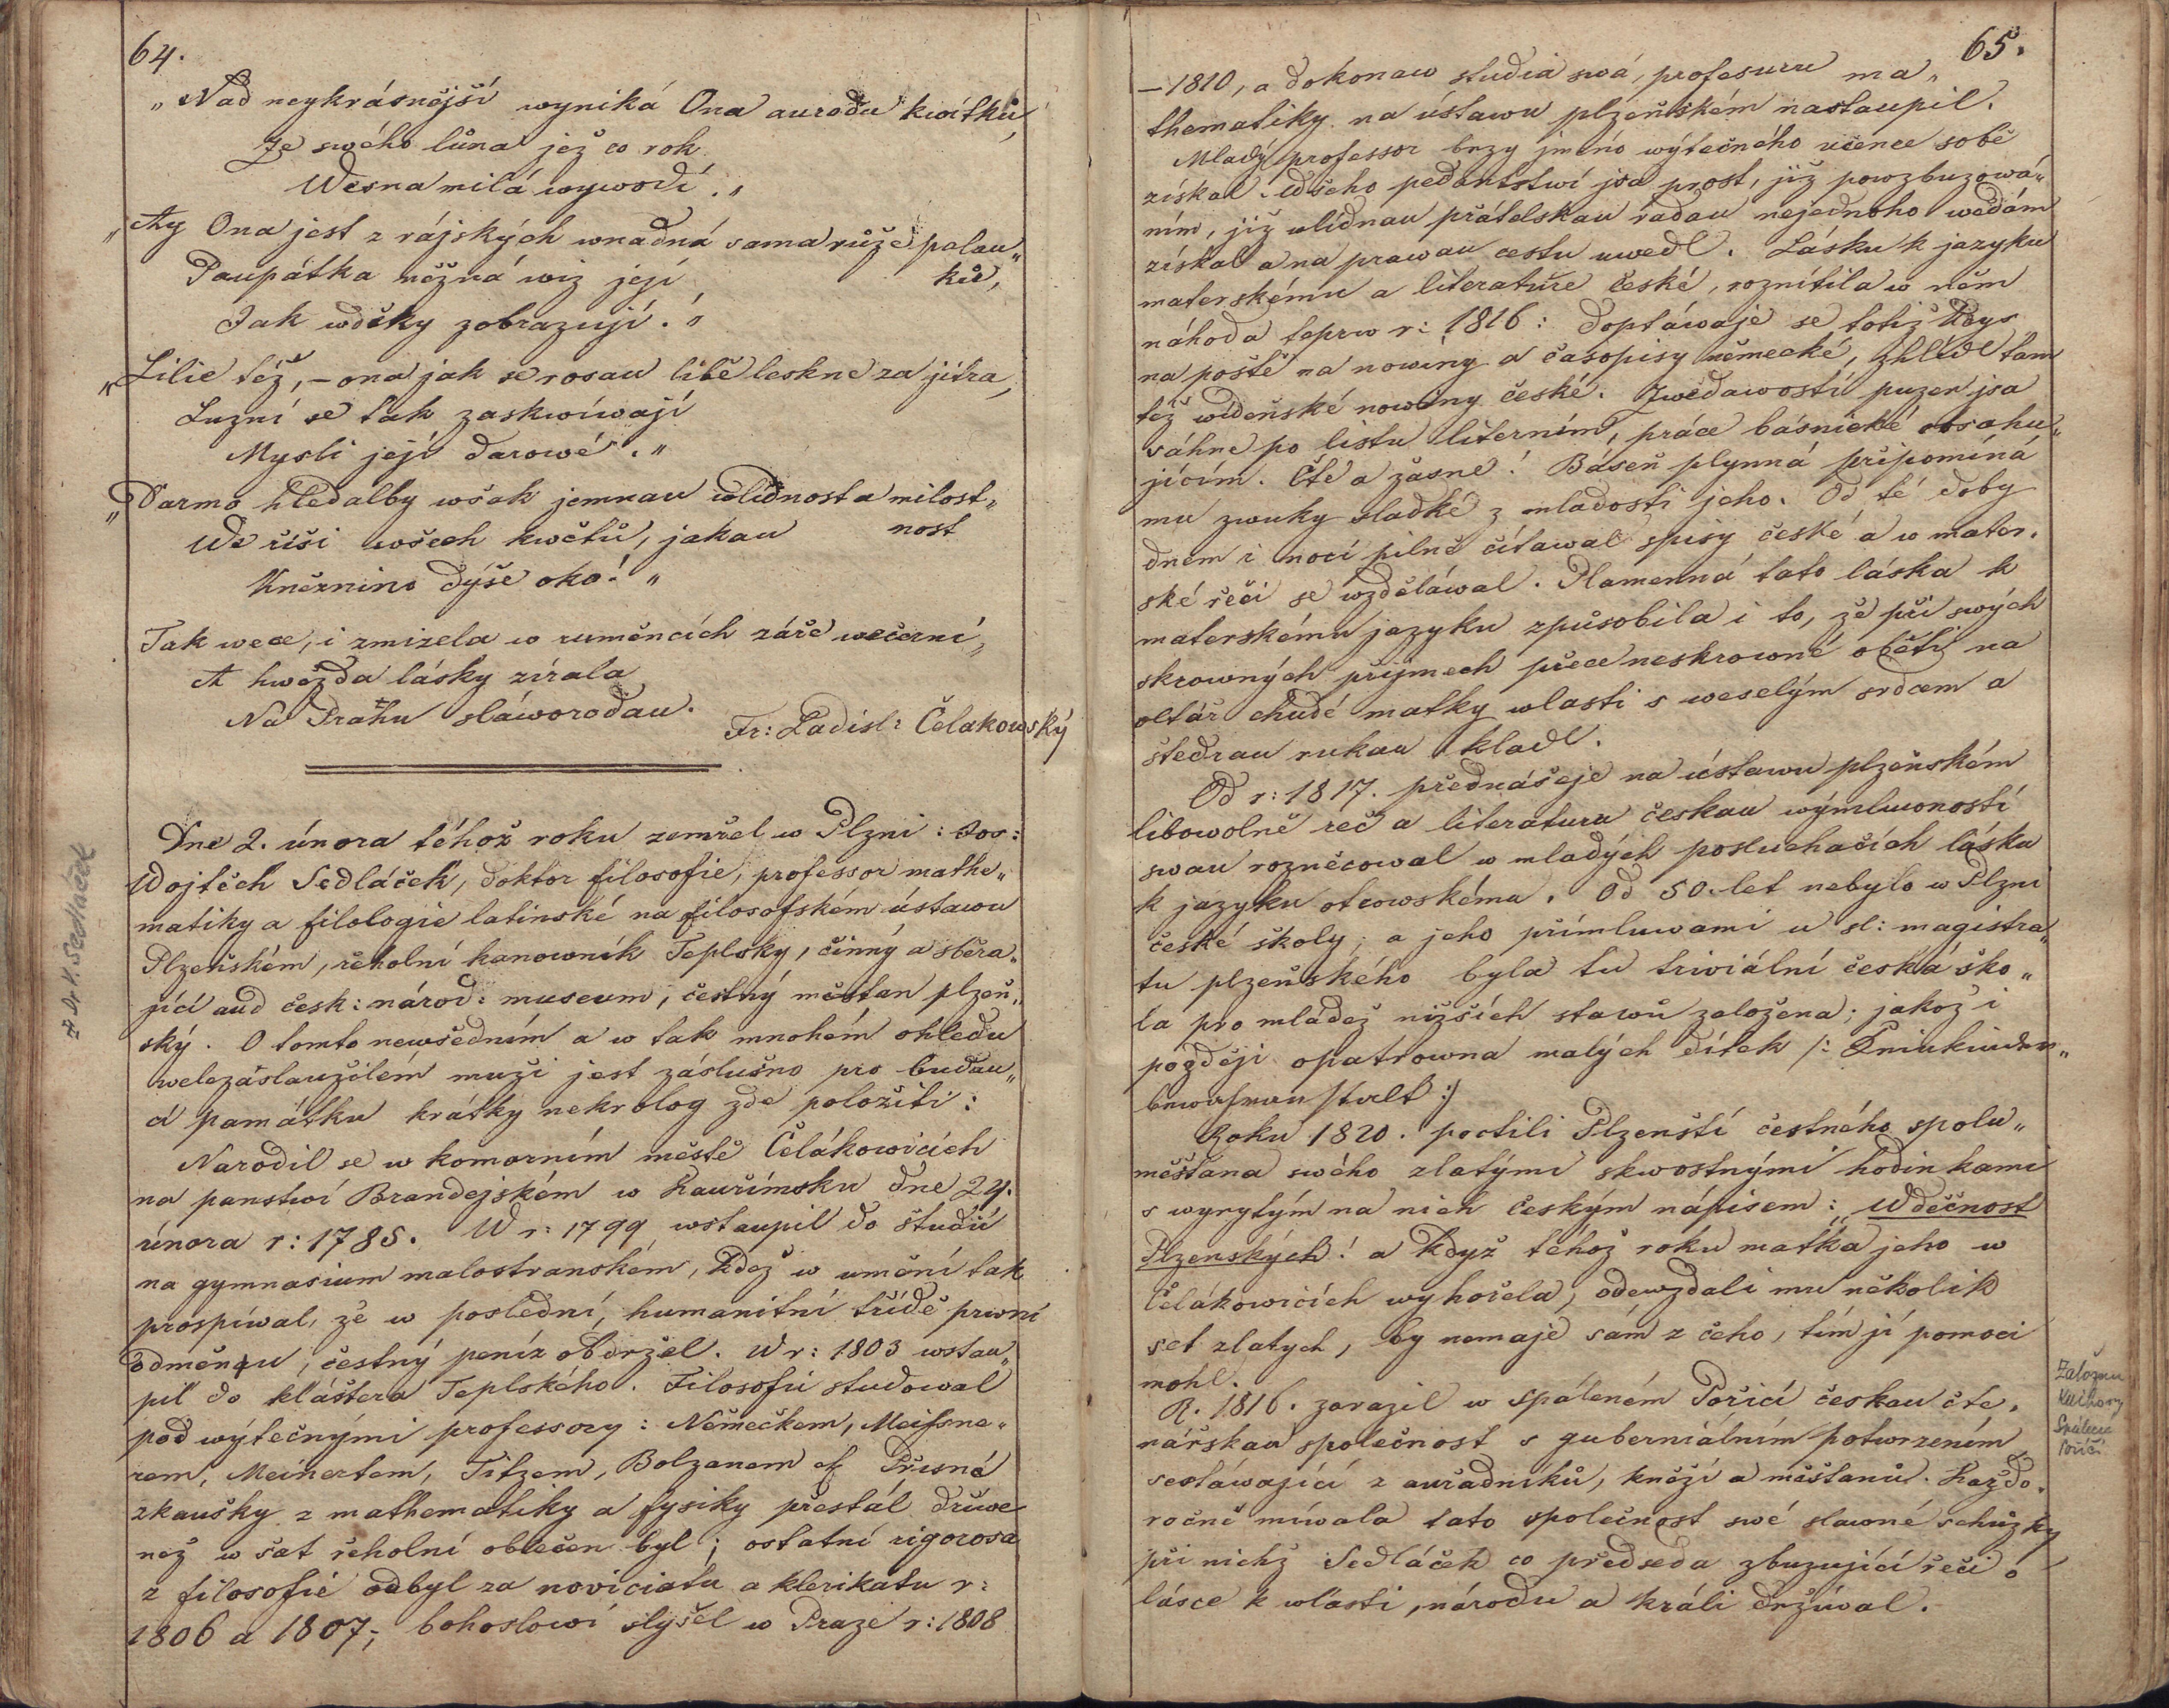 64.
„Nad neykrásnější wyniká Ona aurodu kwítků,
Ze swého lůna jež co rok
Wesna milá wywodí.„
„Ay Ona jest z rájských wnadná sama růže palau„
ků,
Paupátka něžná wiz její
Jak wděky zobrazují.„
„Lilie též, – ona jak se rosau libě leskne za jitra,
Luzní se tak zaskwíwají
Mysli její darowé.„
„Darmo hledalby wšak jemnau wlídnost a milost„
nost
We říši wšech kwětů, jakau
Kněžnino dýše oko!„
Tak wece, i zmizela w ruměncích záře wečerní,
A hwězda lásky zírala
Na Prahu sláworodau.
Fr: Ladisl: Čelakowský
Dne 2. února téhož roku zemřel w Plzni: Jos:
Wojtěch Sedláček, doktor filosofie, professor mathe„
matiky a filologie latinské na filosofském ústawu
Plzeňském, řeholní kanowník Teplsky, činný a sběra„
jící aud česk: národ: museum, čestný měštan plzeň„
ský. O tomto newšedním a w tak mnohém ohledu
welezáslaužilém muži jest záslušno pro budau„
cí památku krátky nekrolog zde položiti:
Narodil se w komorním městě Čelákowicích
na panstwí Brandejském w Kauřimsku dne 24.
února r: 1785. W r: 1799 wstaupil do študií
na gymnasium malostranském, kdež w umění tak
prospíwal, že w poslední, humanitní třídě prwní
odměnau, čestný peníz obdržel. W r: 1803 wstau„
pil do kláštera Teplského. Filosofii studowal
pod wýtečnými professory: Němečkem, Meissne„
rem, Meinertem, Titzem, Bolzanem et Přísné
zkaušky z mathematiky a fysiky přestál dříwe
než w šat řeholní oblečen byl; ostatní rigorosa
z filosofie odbyl za noviciatu a klerikatu r:
1806 a 1807; bohoslowí slyšel w Praze r: 1808
Dr. Sedláček
65.
– 1810, a dokonaw studia swá, profesuru ma„
thematiky na ústawu plzeňském nastaupil.
Mladý professor brzy jméno wýtečného učence sobě
získal. Wšeho pedantstwí jsa prost, již powzbuzowá„
ním, již wlídnau přátelskau radau nejednoho wědám
získal a na prawau cestu uwedl. Lásku k jazyku
materskému a literatuře české, roznítila w něm
náhoda teprw r: 1816: doptáwaje se totiž kdys
na poště na nowiny a časopisy německé, zhlídl tam
též wídeňské nowiny české. Zwědawostí puzen jsa
sáhne po listu literním, práce básnické obsahu„
jícím. Čte a žasne! Báseň plynná připomíná
mu zwuky sladké z mladosti jeho. Od té doby
dnem i nocí pilně čítawal spisy české a w mater„
ské řeči se wzděláwal. Plamenná tato láska k
materskému jazyku způsobila i to, že při swých
skrowných příjmech přece neskrowné oběti na
oltář chudé matky wlasti s weselým srdcem a
štedrau rukau kladl.
Od r: 1817. přednášeje na ústawu plzeňském
libowolně řeč a literaturu českau wýmluwností
swau rozněcowal w mladých posluchačích lásku
k jazyku otcowskému. Od 50. let nebylo w Plzni
české školy, a jeho přímluwami u sl: magistra„
tu plzeňského byla tu triviální česká ško„
la pro mládež nižších stawů založena; jakož i
později opatrowna malých dítek /: Kleinkinder„
bewahranstalt :/
Roku 1820. poctili Plzenští čestného spolu„
měštana swého zlatými skwostnými hodinkami
s wyrytým na nich českým nápisem: Wděčnost
Plzenských! a když téhož roku matka jeho w
Čelákowicích wyhořela, odewzdali mu několik
set zlatych, by nemaje sám z čeho, tím jí pomoci
mohl.
R. 1816. zarazil w Spáleném Pořicí českau čte„
nářskau společnost s guberniálním potwrzením
sestáwající z auřadníků, kněží a měštanů. Každo„
ročně míwala tato společnost swé slawné schůzky
při nichž Sedláček co předseda zbuzující řeči o
lásce k wlasti, národu a králi držíwal.
Založení
knihovny
Spálené
Poříčí